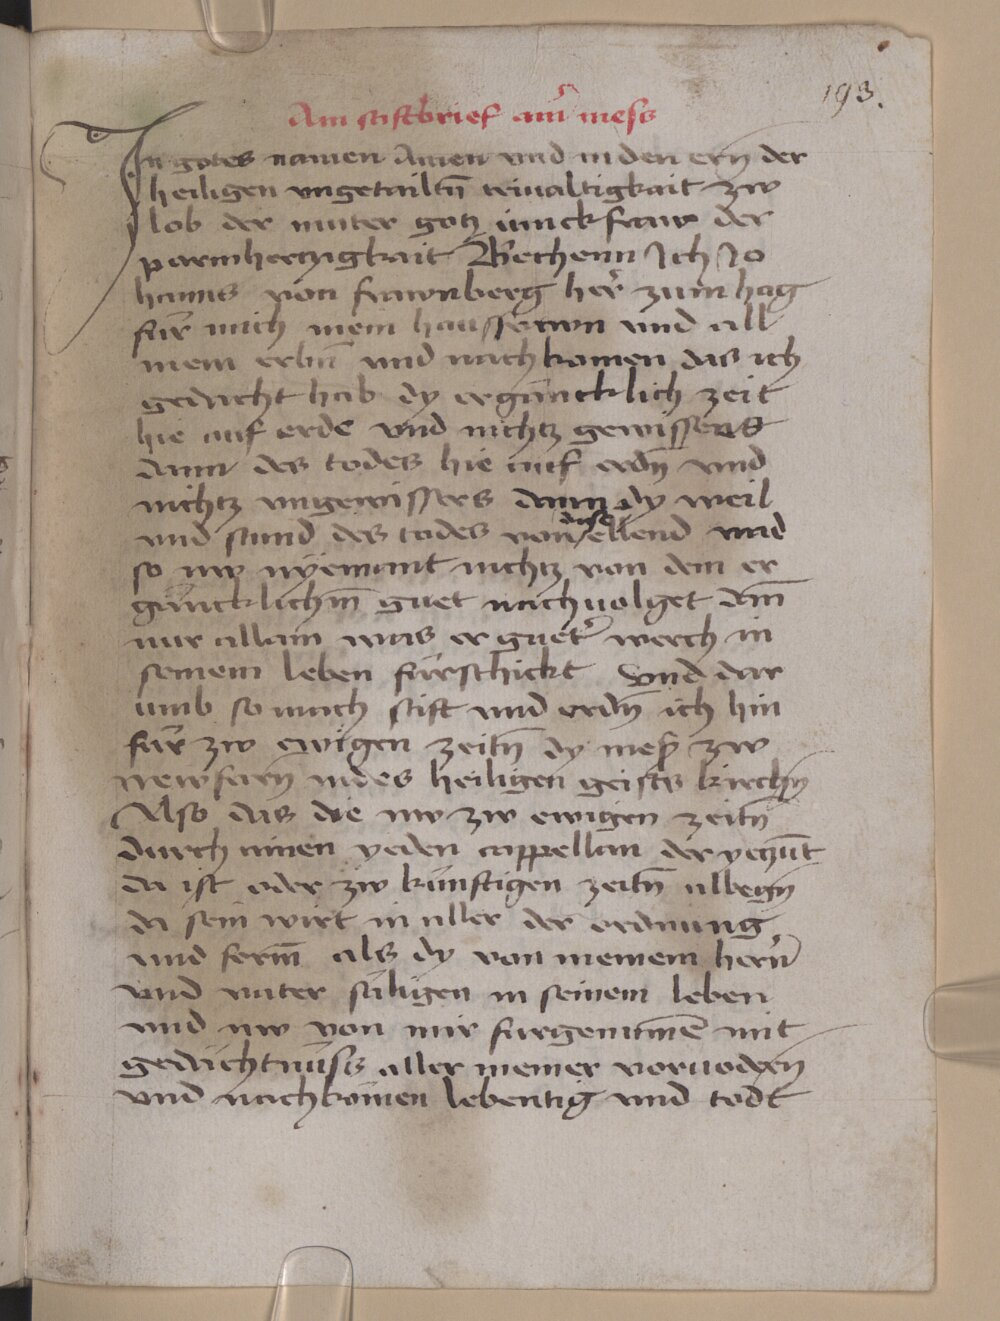 193.
Ain stiftbrief ainr mess
In gotes namen Amen und in den ern der
heiligen ungetailtn trivaltigkait zw
lob der muter gotz junckfraw der
parmhertzigkait Bechenn Ich Jo
hanns von frawnberg her zum hag
für mich mein haussfrawn und all
mein erbn und nachkomen das ich
gedacht hab dy ergäncklich zeit
hie auf erde und nichtz gewissers
dann des todes hie auf erdn und
nichtz ungewissers dann dy weil
und stund des todes von dise ellend und
so nw nÿemant nichtz von dem er
gäncklichm guet nachvolget dan
nur allain was er guetr werch in
seinem leben fürschickt Und dar
umb so mach stift und ordn ich hin
für zw ewigen zeitn dy mess zw
newfarn in des heiligen geists kirchn
Also das die nw zw ewigen zeitn
durch ainen yeden cappellan der yezunt
da ist oder zw künftigen zeitn albegn
da sein wirt in aller der ordnung
und form als dy von meinem hern
und vater säligen in seinem leben
und nw von mir furgenumen mit
gedächtnüss aller meiner vorvodern
und nachkomen lebentig und todt